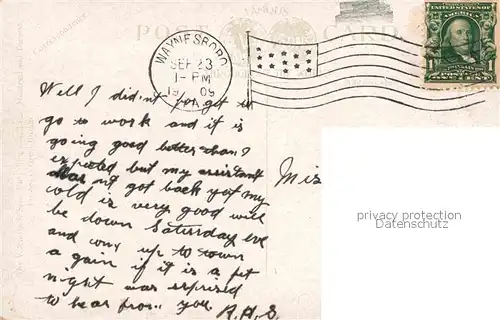 POST CARD
WAYNESBORO
SEP 23
1-PM
1909
UNITED STATES OF AMERICA
1
Well I didn't forget to
go to work and it is
going good better than I
expected but my assistant
has not got back yet my
cold is very good will
be down Saturday eve
and com up to town
a gain if it is a fit
night was surprised
to hear from you.
R.H.S.
Mis
privacy protection
Datenschutz